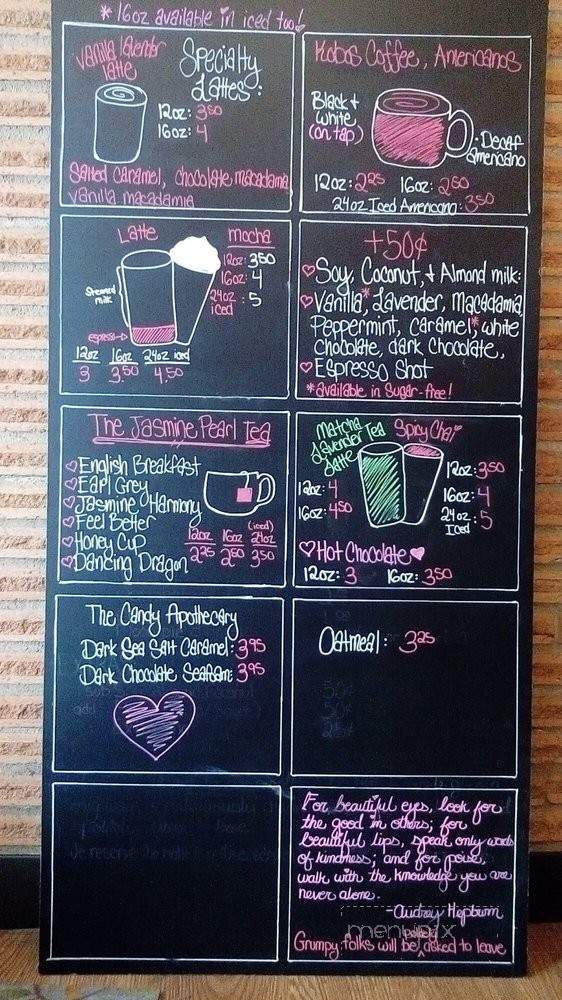 *16oz available in iced too!
Vanilla lavender
latte
Specialty
Lattes:
12oz: 3.50
16oz: 4
Salted Caramel, chocolate macadamia
vanilla macadamia
Kobos Coffee, Americanos
Black &
white
(on tap)
Decaf
americano
12oz: 2.25 16oz: 2.50
24oz Iced Americano: 3.50
Latte
mocha
12oz: 3.50
16oz: 4
24oz: 5
iced
Steamed
milk
espresso→
12oz 16oz 24oz iced
3 3.50 4.50
+50¢
♡ Soy, Coconut, & Almond milk:
♡ Vanilla*, Lavender, Macadamia,
Peppermint, Caramel* white
chocolate, dark chocolate,
♡ Espresso Shot
*available in Sugar-free!
The Jasmine Pearl Tea
♡ English Breakfast
♡ Earl Grey
♡ Jasmine Harmony
♡ Feel Better
♡ Honey Cup
♡ Dancing Dragon
(iced)
12oz 16oz 24oz
2.25 2.50 3.50
Matcha
Lavender Tea
Latte
12oz: 4
16oz: 4.50
Spicy Chai
12oz: 3.50
16oz: 4
24oz: 5
Iced
♡ Hot Chocolate ♥
12oz: 3 16oz: 3.50
The Candy Apothecary
Dark Sea Salt Caramel: 3.95
Dark Chocolate Seafoam: 3.95
Oatmeal: 3.25
50¢
50¢
25¢
For beautiful eyes, look for
the good in others; for
beautiful lips, speak only words
of kindness; and for poise,
walk with the knowledge you are
never alone.
-Audrey Hepburn
menupix
Grumpy folks will be asked to leave